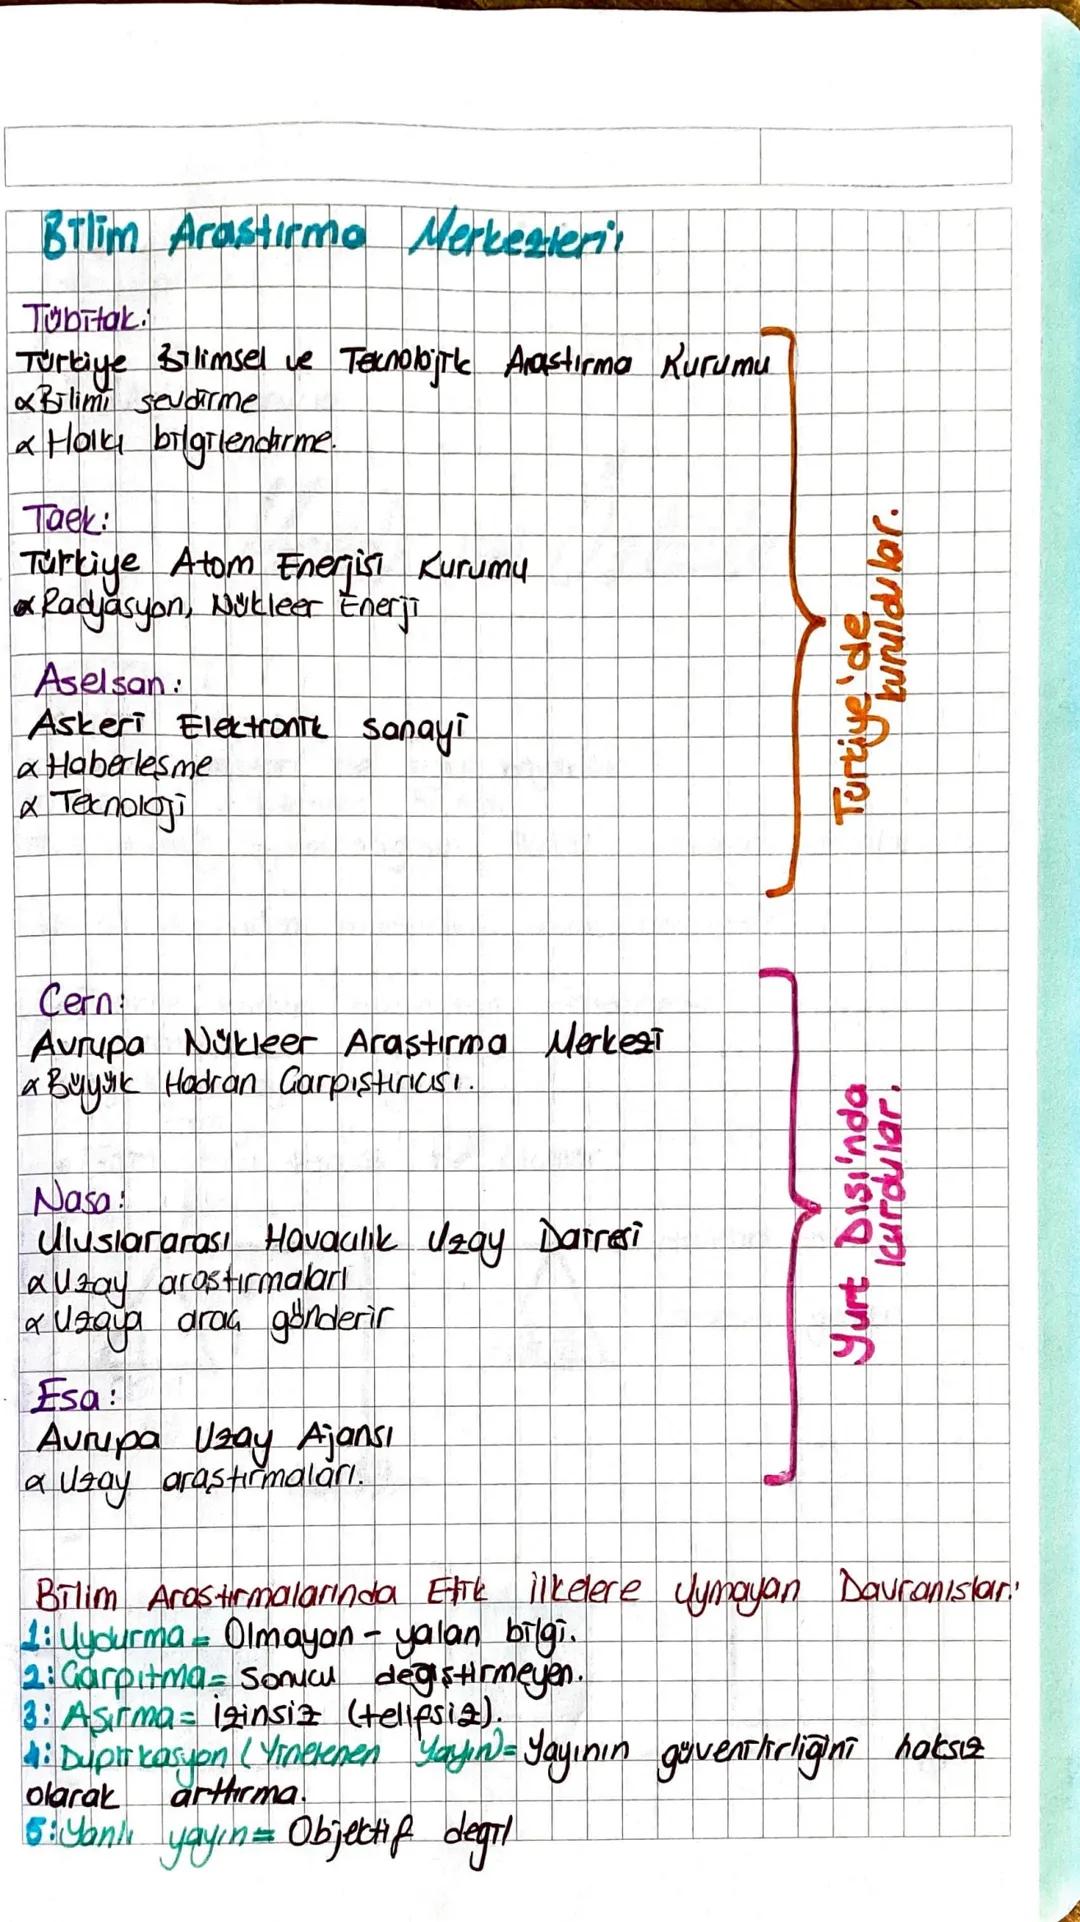 Bilim Arastırma Merkezleri:
Tübitak:
Türkiye Bilimsel ve Teknolojik Arastırma Kurumu
α Bilimi sevdirme
α Halkı bilgilendirme.
Taek:
Türkiye Atom Enerjisi Kurumu
α Radyasyon, Nükleer Enerji
Aselsan:
Askeri Elektronik sanayi
α Haberleşme
α Teknoloji
Türkiye'de
kuruldular.
Cern:
Avrupa Nükleer Araştırma Merkezi
α Büyük Hadran Çarpıştırıcısı.
Nasa:
Uluslararası Havacılık Uzay Dairesi
α Uzay araştırmaları
α Uzaya araç gönderir
Esa:
Avrupa Uzay Ajansı
α Uzay araştırmaları.
Yurt Dısı'nda
kurdular.
Bilim Arastırmalarında Etik ilkelere Uymayan Davranıslar:
1: Uydurma = Olmayan - yalan bilgi.
2: Çarpıtma = Sonucu değiştirmeyen.
3: Aşırma = İzinsiz (telifsiz).
4: Duplikasyon (Yinelenen Yayın) = Yayının güvenilirliğini haksız
olarak arttırma.
5: Yanlı yayın = Objektif değil